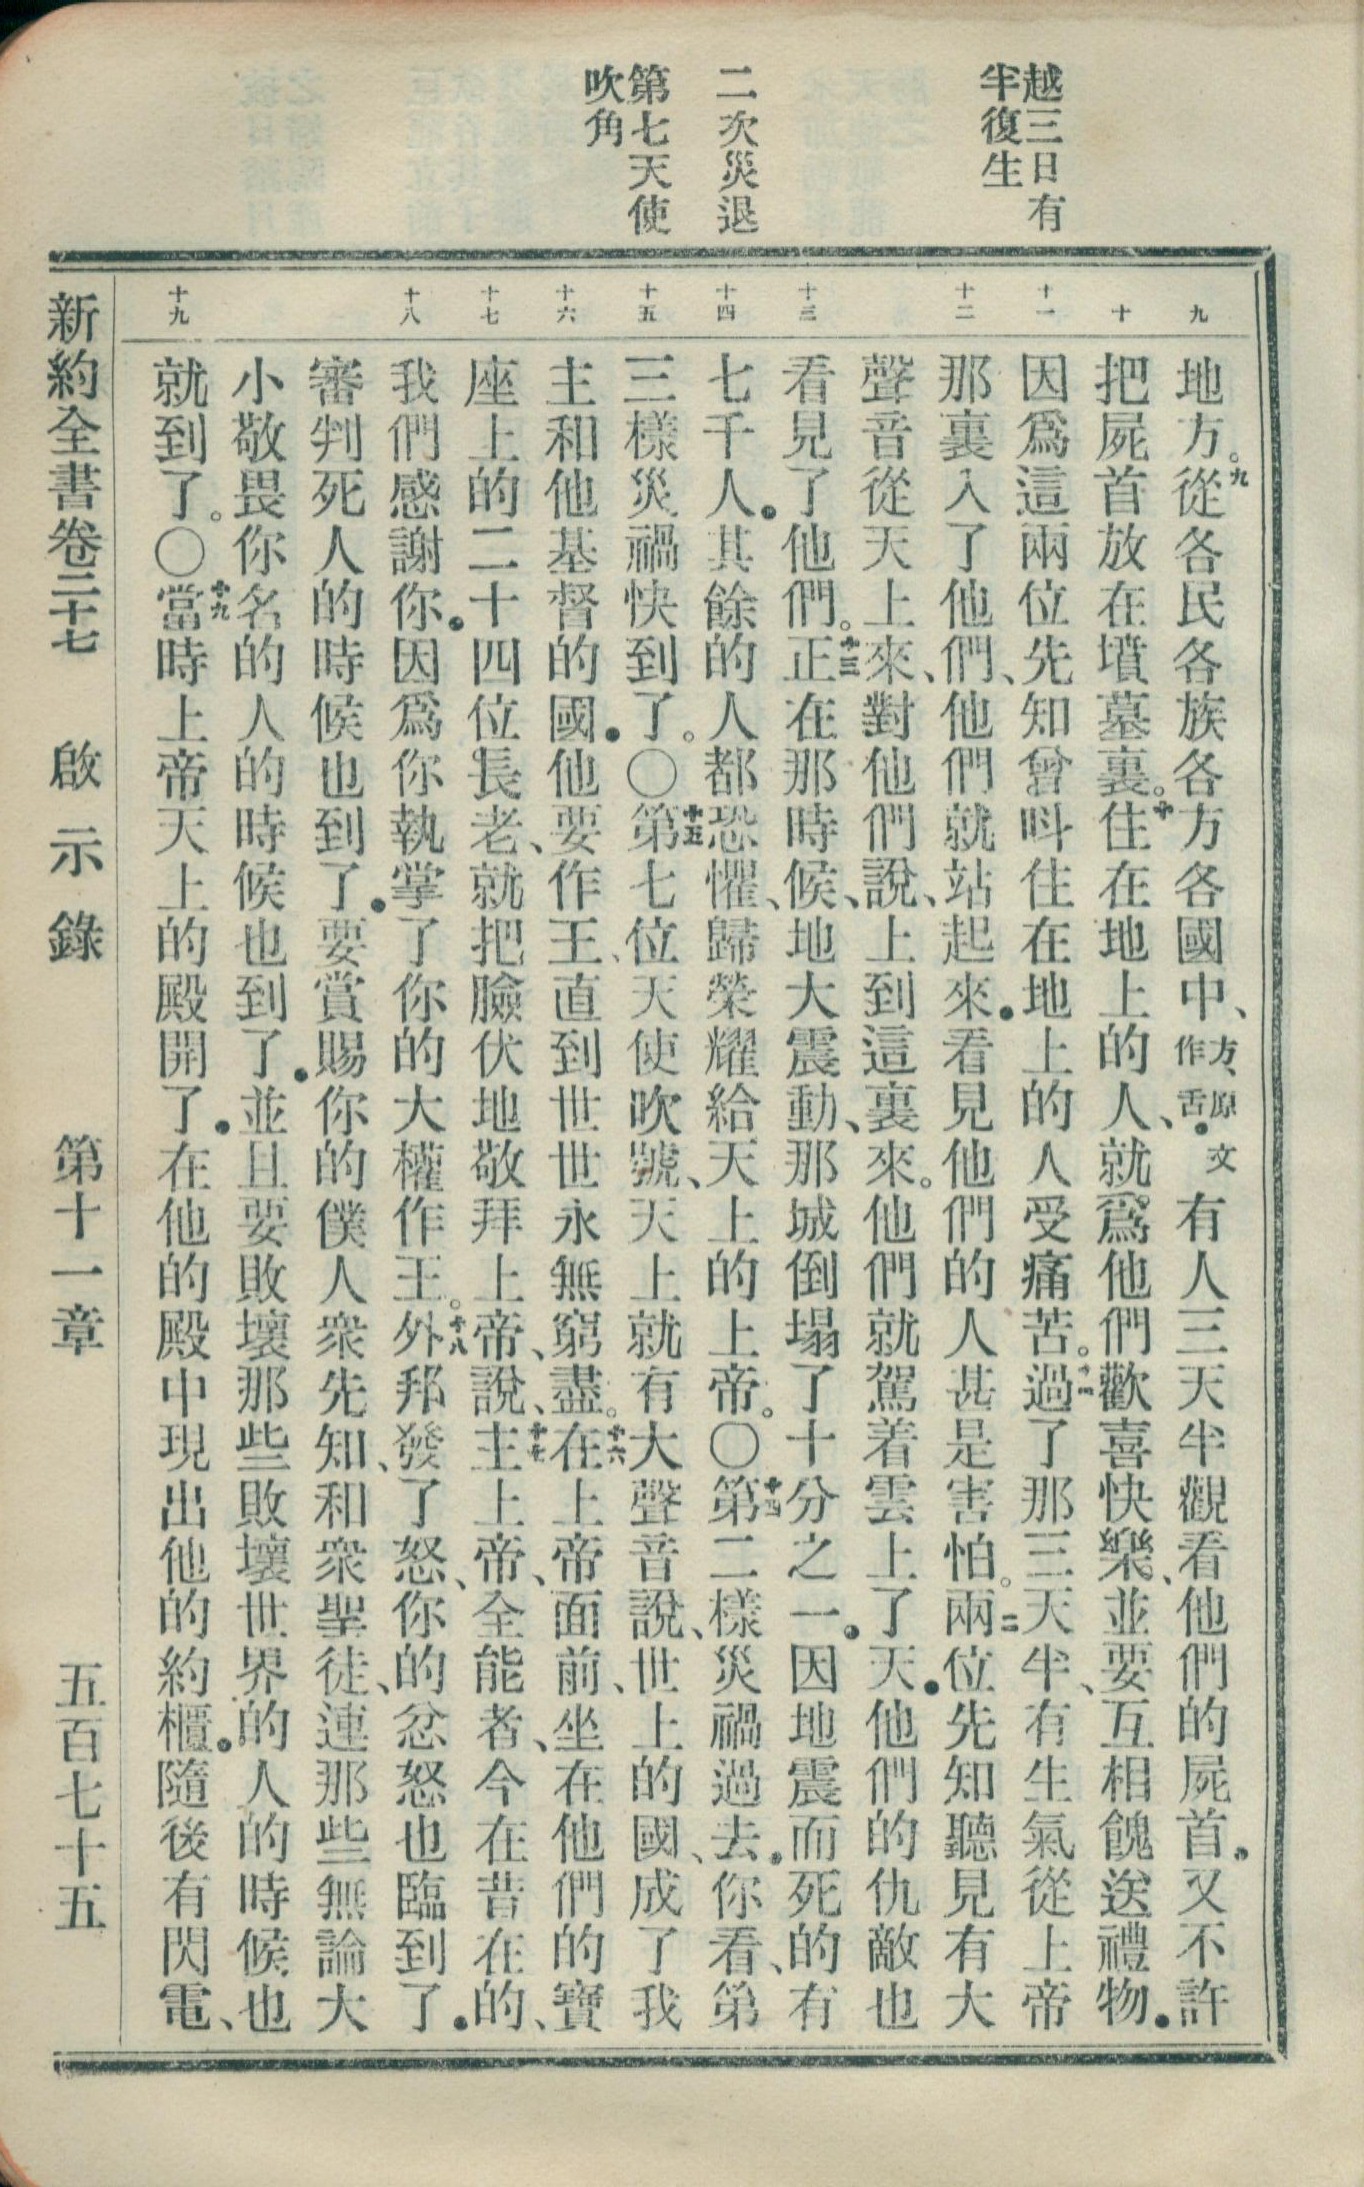 越三日有
半復生
二次災退
第七天使
吹角
九 十 十一 十二 十三 十四 十五 十六 十七 十八 十九
地方。九從各民各族各方各國中、方、原文作舌、有人三天半觀看他們的屍首．又不許
把屍首放在墳墓裏。十住在地上的人、就爲他們歡喜快樂、並要互相餽送禮物．
因爲這兩位先知曾呌住在地上的人受痛苦。十一過了那三天半、有生氣從上帝
那裏入了他們、他們就站起來．看見他們的人甚是害怕。十二兩位先知聽見有大
聲音從天上來、對他們說、上到這裏來。他們就駕着雲上了天．他們的仇敵也
看見了他們。十三正在那時候、地大震動、那城倒塌了十分之一．因地震而死的有
七千人．其餘的人都恐懼、歸榮耀給天上的上帝。〇十四第二樣災禍過去．你看、第
三樣災禍快到了。〇十五第七位天使吹號、天上就有大聲音說、世上的國、成了我
主和他基督的國．他要作王、直到世世永無窮盡。十六在上帝面前、坐在他們的寶
座上的二十四位長老、就把臉伏地敬拜上帝、說、十七主上帝、全能者、今在昔在的、
我們感謝你．因爲你執掌了你的大權作王。十八外邦發了怒、你的忿怒也臨到了．
審判死人的時候也到了．要賞賜你的僕人衆先知、和衆聖徒、連那些無論大
小敬畏你名的人的時候也到了．並且要敗壞那些敗壞世界的人的時候也
就到了。〇十九當時上帝天上的殿開了．在他的殿中現出他的約櫃．隨後有閃電、
新約全書卷二十七 啟示錄 第十一章 五百七十五